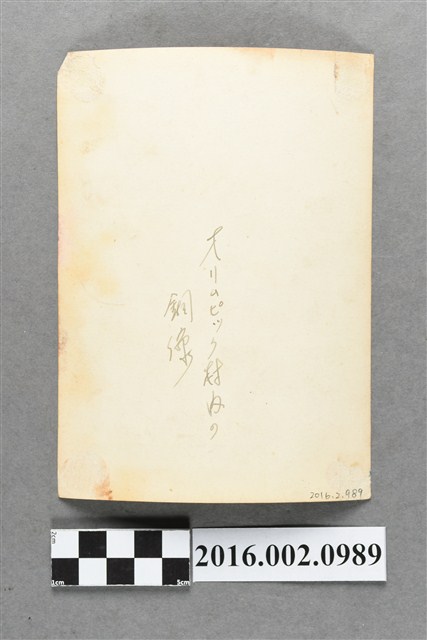 オリムピック村内の
銅像
2016.2.989
2cm
1cm
5cm
2016.002.0989